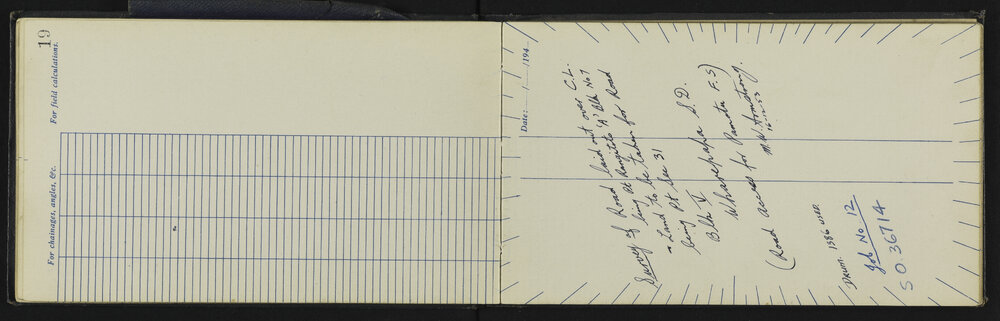 19
For field calculations.
For chainages, angles, &c.
Date: / /194
Survey of Road laid out over C.L.
being Pt Rangitoto 'A' Blk No 7
& Land to be taken for Road
being Pt Sec 31
Blk I Wharepapa S.D.
(Road access for Wharepapa F.S)
M.W. Armstrong.
16-11-53
DRUM. 1386 USED.
Job No. 12
S O. 36714